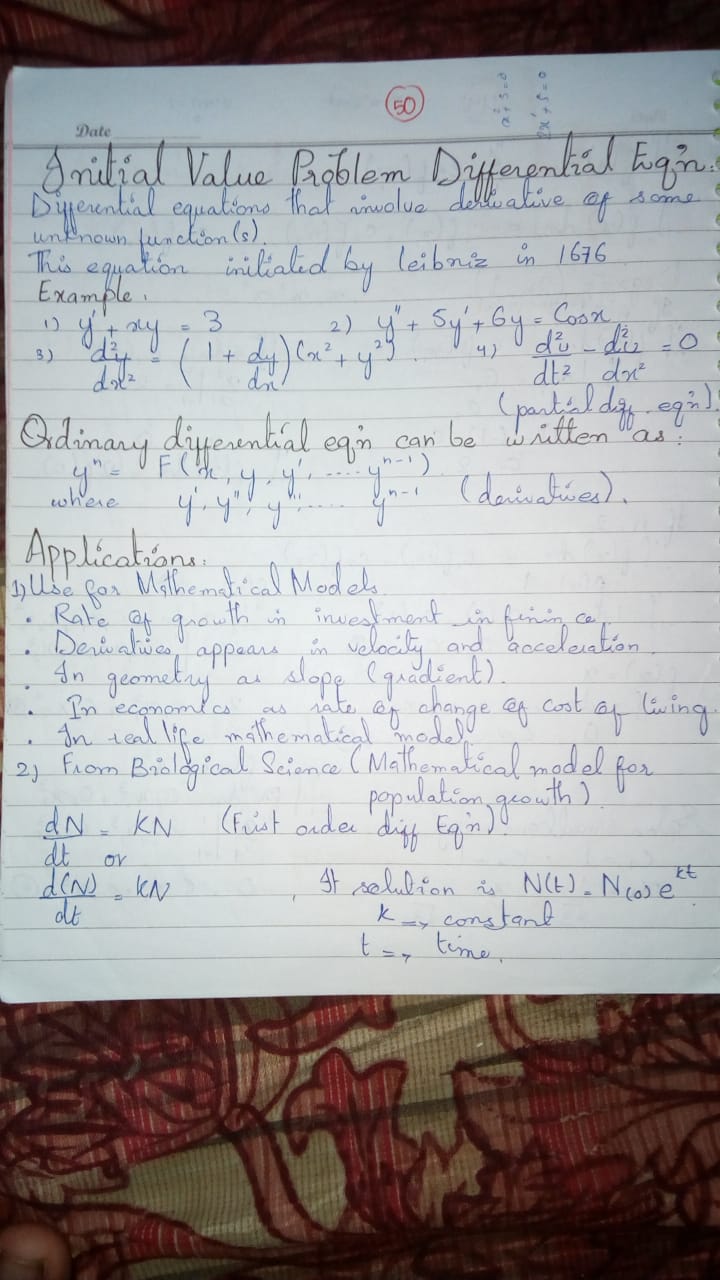 50
x²+5=0
2x'+5=0
Date
Initial Value Problem Differential Eq'n.
Differential equations that involve derivative of some
unknown function(s).
This equation initiated by leibniz in 1676
Example.
1) y' + xy = 3   2) y" + 5y' + 6y = Cosx
3) d²y/dx² = (1 + dy/dx)(x² + y²)   4) d²u/dt² - d²u/dx² = 0
(partial diff. eq'n).
Ordinary differential eq'n can be written as:
yⁿ = F(x, y, y', .... yⁿ⁻¹)
where y', y", y''', .... yⁿ⁻¹ (derivatives).
Applications:
1) Use for Mathematical Models
• Rate of growth in investment in finin ce
• Derivatives appears in velocity and acceleration.
• In geometry as slope (gradient).
• In economics as rate of change of cost of living.
• In real life mathematical model
2) From Biological Science (Mathematical model for
population growth)
dN/dt = KN (Frist order diff Eq'n).
or
d(N)/dt = KN , It solution is N(t) = N(o) e^kt
K => constant
t => time.